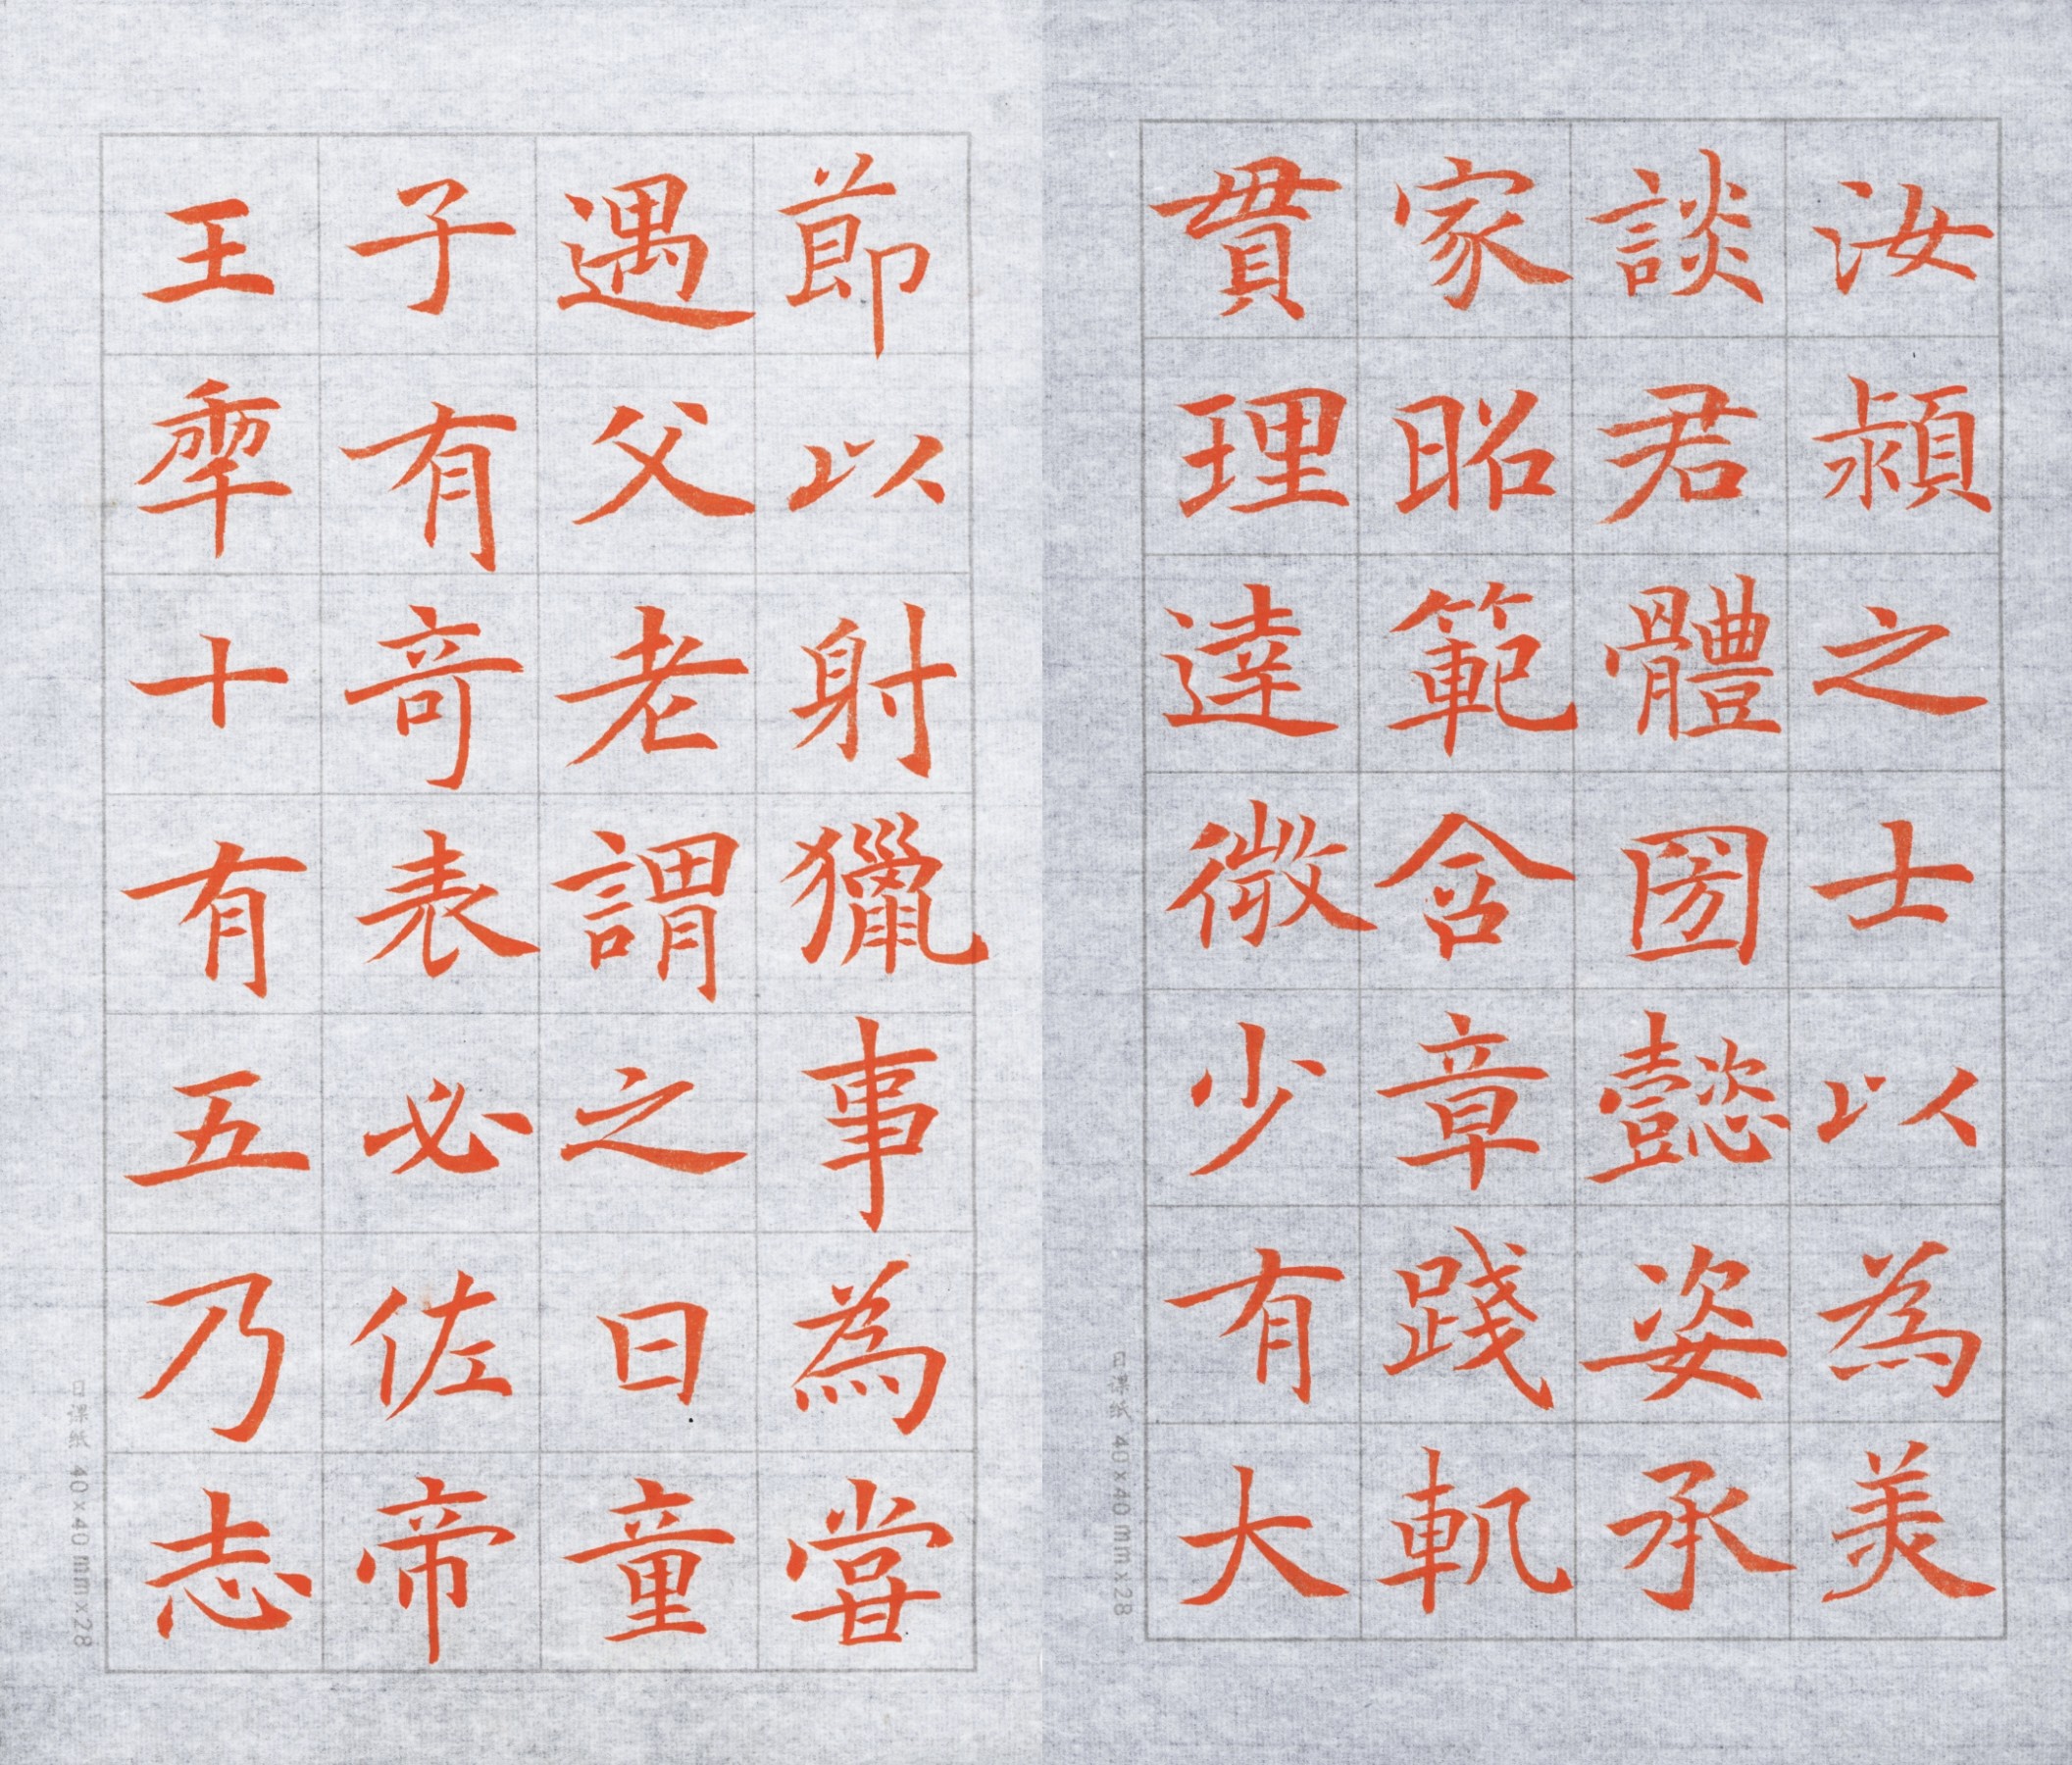 汝潁之士以為美
談君體囶懿姿承
家昭範含章踐軌
貫理達微少有大
節以射獵事為嘗
遇父老謂之曰童
子有奇表必佐帝
王年十有五乃志
口课纸 40×40mm×28
口课纸 40×40mm×28